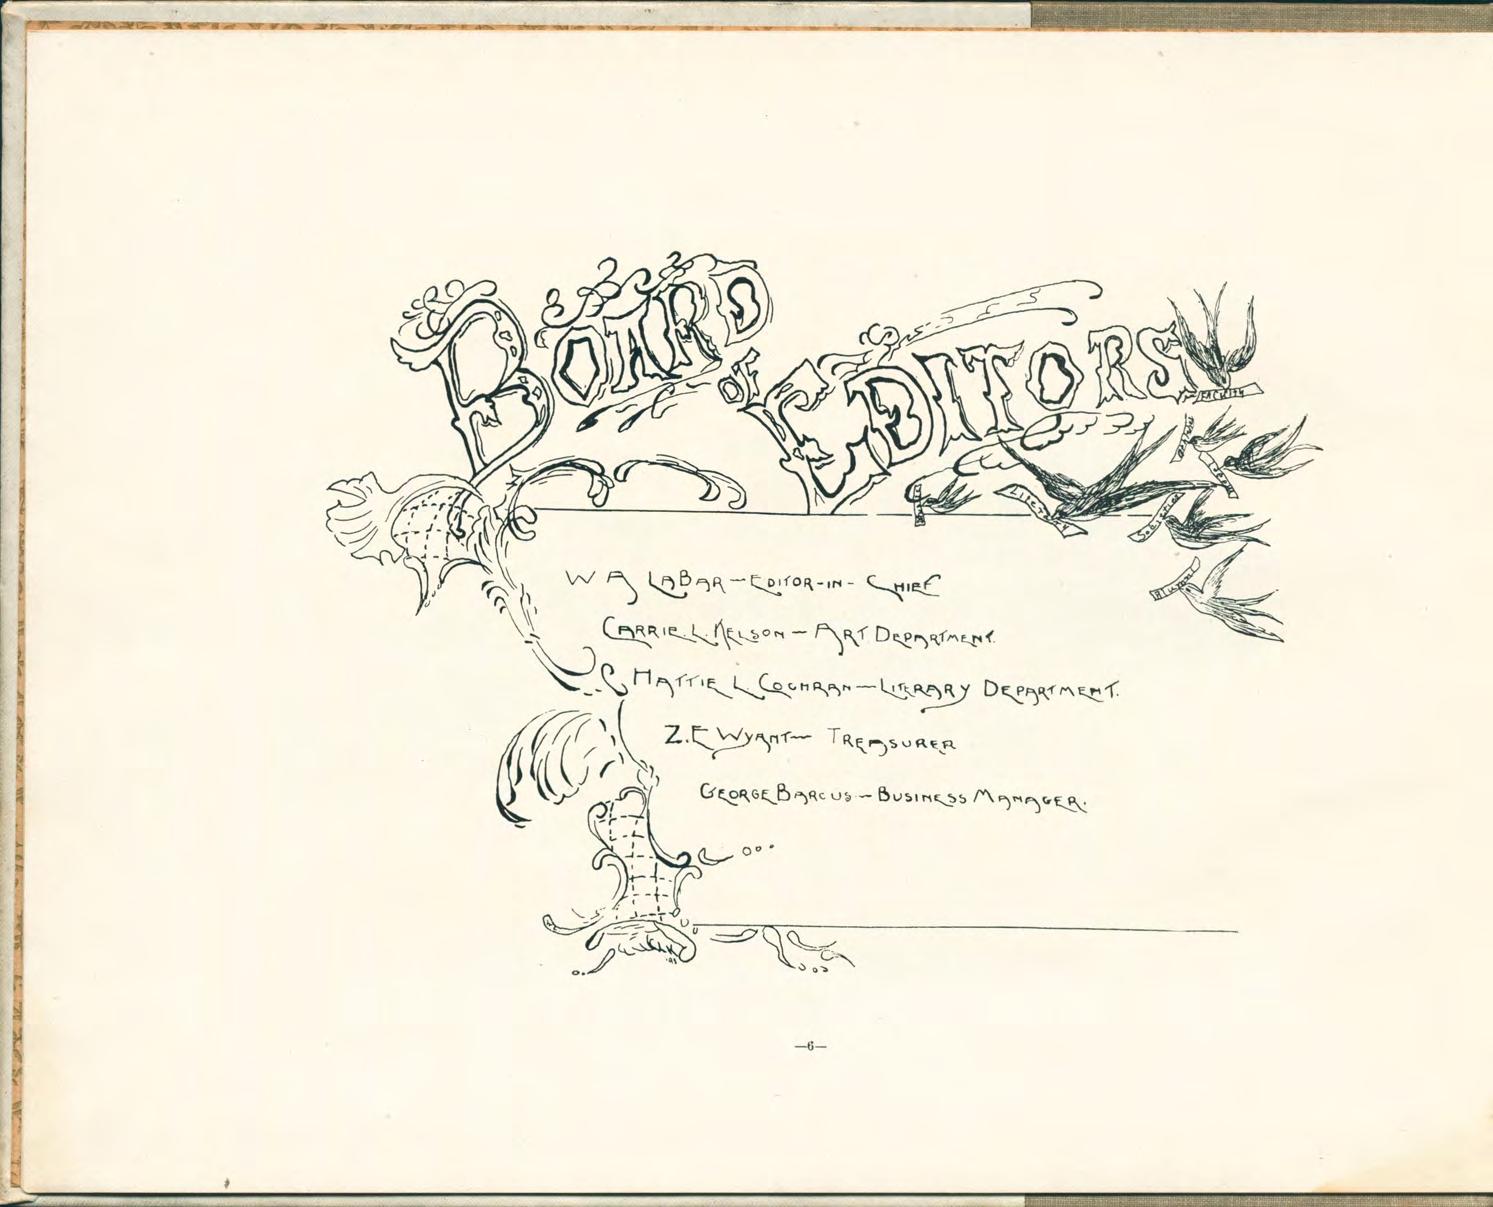 BOARD
OF
EDITORS
FACULTY
LITERARY
SOCIETIES
ALUMNI
W A LABAR – EDITOR-IN-CHIEF
CARRIE. L. NELSON – ART DEPARTMENT.
HATTIE L. COCHRAN – LITERARY DEPARTMENT.
Z. E WYANT – TREASURER
GEORGE BARCUS – BUSINESS MANAGER.
—6—